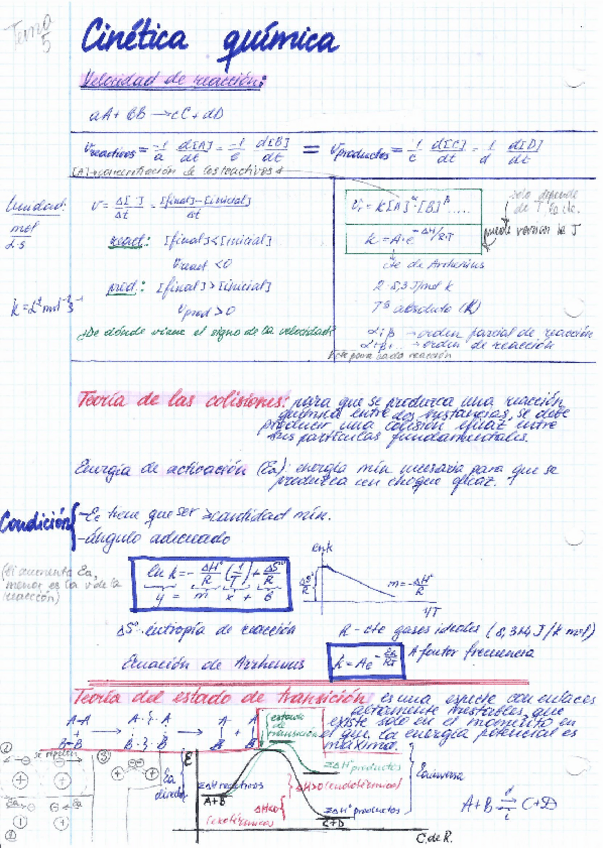 Tema 5
Cinética química
Velocidad de reacción:
aA + bB → cC + dD
Vreactivos = -1/a d[A]/dt = -1/b d[B]/dt = Vproductos = 1/c d[C]/dt = 1/d d[D]/dt
[A] → concentración de los reactivos A
Unidad: mol/L·s
V = Δ[ ]/Δt = [final]-[inicial]/Δt
react: [final] < [inicial]
Vreact < 0
prod: [final] > [inicial]
Vprod > 0
¿De dónde viene el signo de la velocidad?
Vi = k[A]^α·[B]^β .....
solo depende de T
k = A·e
puede variar la T
cte de Arrhenius
Tª absoluto (K)
α i β → orden parcial de reacción
α+β+... → orden de reacción
cte para cada reacción
Teoría de las colisiones: para que se produzca una reacción
química entre dos sustancias, se debe
producir una colisión eficaz entre
sus partículas fundamentales.
Energía de activación (Ea): energía mín necesaria para que se
produzca un choque eficaz.
Condición
-Ec tiene que ser > cantidad mín.
-ángulo adecuado
(si aumenta Ea,
menor es la v de la
reacción)
ln k = - ΔH°/R (1/T) + ΔS°/R
y = m x + b
ln k
ΔS°/R
m = -ΔH°/R
1/T
ΔS° entropía de reacción
R - cte gases ideales (8,314 J/k mol)
Ecuación de Arrhenius
k = Ae^-Ea/RT
A factor frecuencia
Teoría del estado de transición es una especie con enlaces
altamente inestables que
existe solo en el momento en
el que la energía potencial es
máxima.
A-A
B-B
→
A·-·A
B·-·B
→
A A
B B
estado
de
transición
se repelen
E
Ea
directa
ΣΔH reactivos
A+B
ΔH<0
(exotérmicas)
ΣΔH° productos
ΔH>0 (endotérmicas)
ΣΔH° productos
C+D
Ea inversa
A+B ⇌ C+D
C. de R.